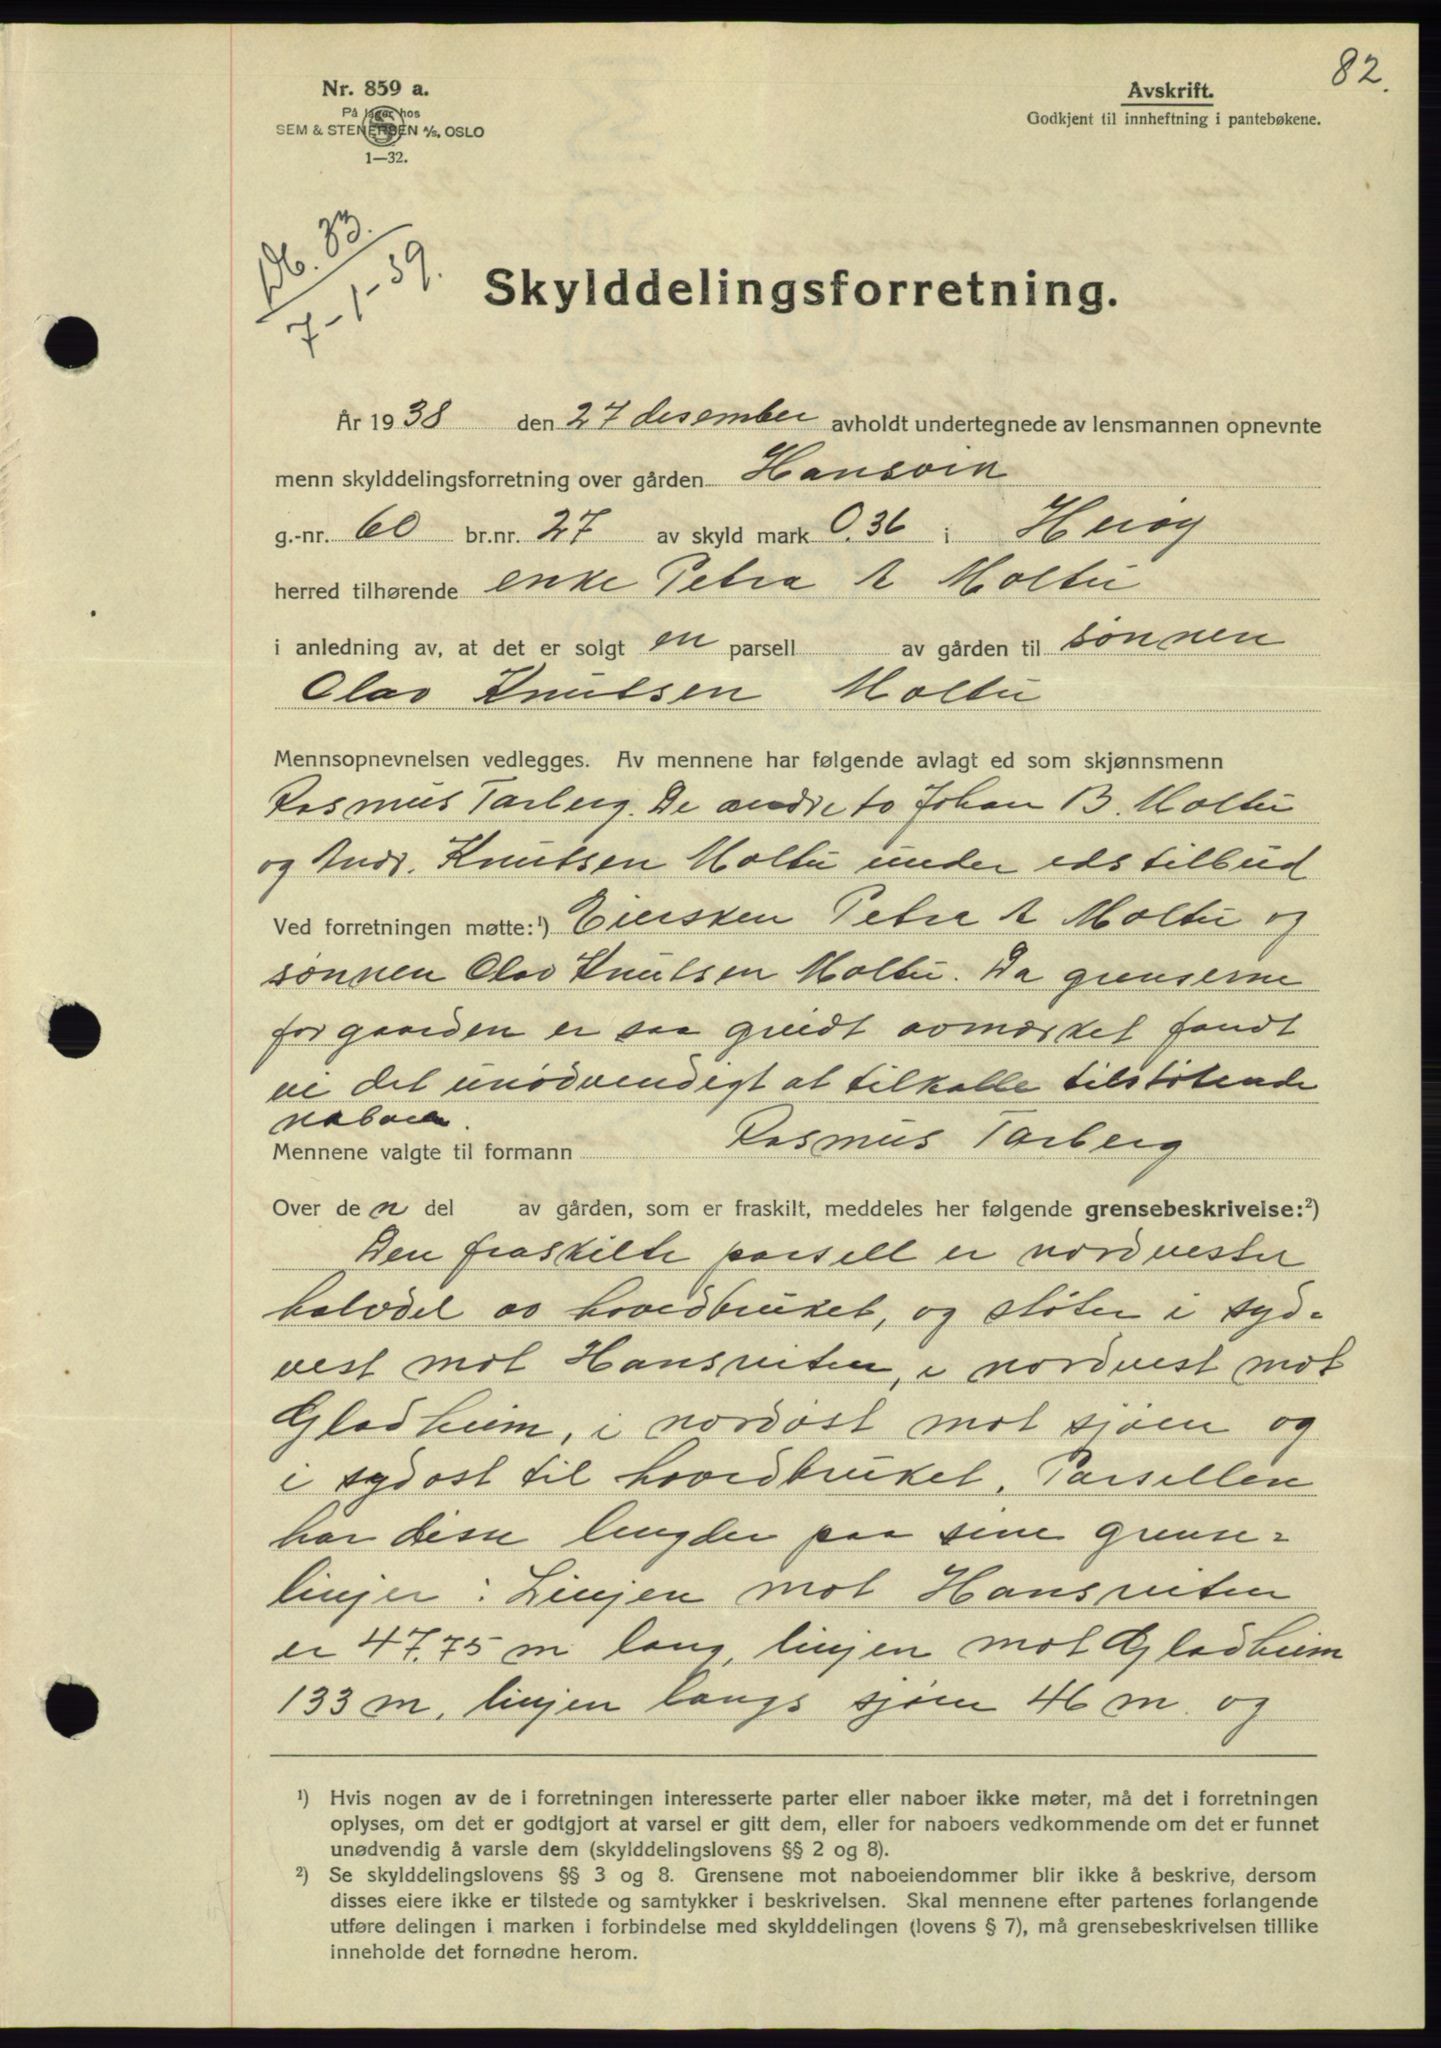 82.
Nr. 859 a.
På lager hos
SEM & STENERSEN A/S, OSLO
1—32.
Avskrift.
Godkjent til innheftning i pantebøkene.
Db. 33.
7-1-39.
Skylddelingsforretning.
År 1938 den 27 desember avholdt undertegnede av lensmannen opnevnte
menn skylddelingsforretning over gården Hansvik
g.-nr. 60 br.nr. 27 av skyld mark 0.36 i Herøy
herred tilhørende enke Petra A Moltu
i anledning av, at det er solgt en parsell av gården til sønnen
Olav Knutsen Moltu
Mennsopnevnelsen vedlegges. Av mennene har følgende avlagt ed som skjønnsmenn
Rasmus Tarberg. De andre to Johan B. Moltu
og Andr. Knutsen Moltu under edstilbud
Ved forretningen møtte:¹) Eiersken Petra A Moltu og
sønnen Olav Knutsen Moltu. Da grenserne
for gaarden er saa greidt avmerket fandt
vi det unødvendigt at tilkalle tilstøtende
naboer.
Mennene valgte til formann Rasmus Tarberg
Over den del av gården, som er fraskilt, meddeles her følgende grensebeskrivelse:²)
Den fraskilte parsell er nordvestre
halvdel av hovedbruket, og støter i syd=
vest mot Hansveiten, i nordvest mot
Gladheim, i nordøst mot sjøen og
i sydøst til hovedbruket. Parsellen
har disse lengder paa sine grense=
linjer: Linjen mot Hansveiten
er 47.75 m lang, linjen mot Gladheim
133 m, linjen langs sjøen 46 m og
¹) Hvis nogen av de i forretningen interesserte parter eller naboer ikke møter, må det i forretningen
oplyses, om det er godtgjort at varsel er gitt dem, eller for naboers vedkommende om det er funnet
unødvendig å varsle dem (skylddelingslovens §§ 2 og 8).
²) Se skylddelingslovens §§ 3 og 8. Grensene mot naboeiendommer blir ikke å beskrive, dersom
disses eiere ikke er tilstede og samtykker i beskrivelsen. Skal mennene efter partenes forlangende
utføre delingen i marken i forbindelse med skylddelingen (lovens § 7), må grensebeskrivelsen tillike
inneholde det fornødne herom.